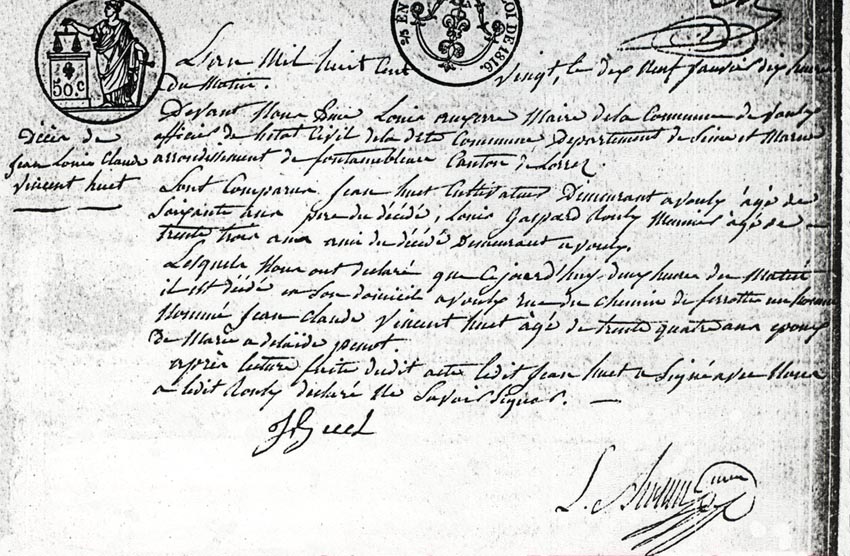 50.C
25 EN
LOI DE 1816.
L'an Mil huit Cent vingt, le dix Neuf janvier dix heures
du Matin.
Devant Nous Louis Maire de la Commune de vouly
officier de l'etat Civil de la dite Commune, Departement de Seine et Marne
arrondissement de fontainebleau Canton de Lorrez.
Décès de
jean Louis Claude
vincent huet
Sont Comparus jean huet Cultivateur Demeurant a vouly âgé de
Soixante ans pere du décédé, Louis Gaspard Rouly âgé de
trente trois ans ami du décédé Demeurant a vouly.
Lesquels Nous ont declaré que Cejourd'huy heures du Matin
il est décédé en Son domicile a vouly rue du chemin de ferrotte un homme
Nommé jean Claude vincent huet âgé de trente quatre ans epoux
De Marie adelaïde penot.
après lecture faite dudit acte ledit jean huet a Signé avec Nous
a ledit Rouly declaré Ne Savoir Signer.
J huet